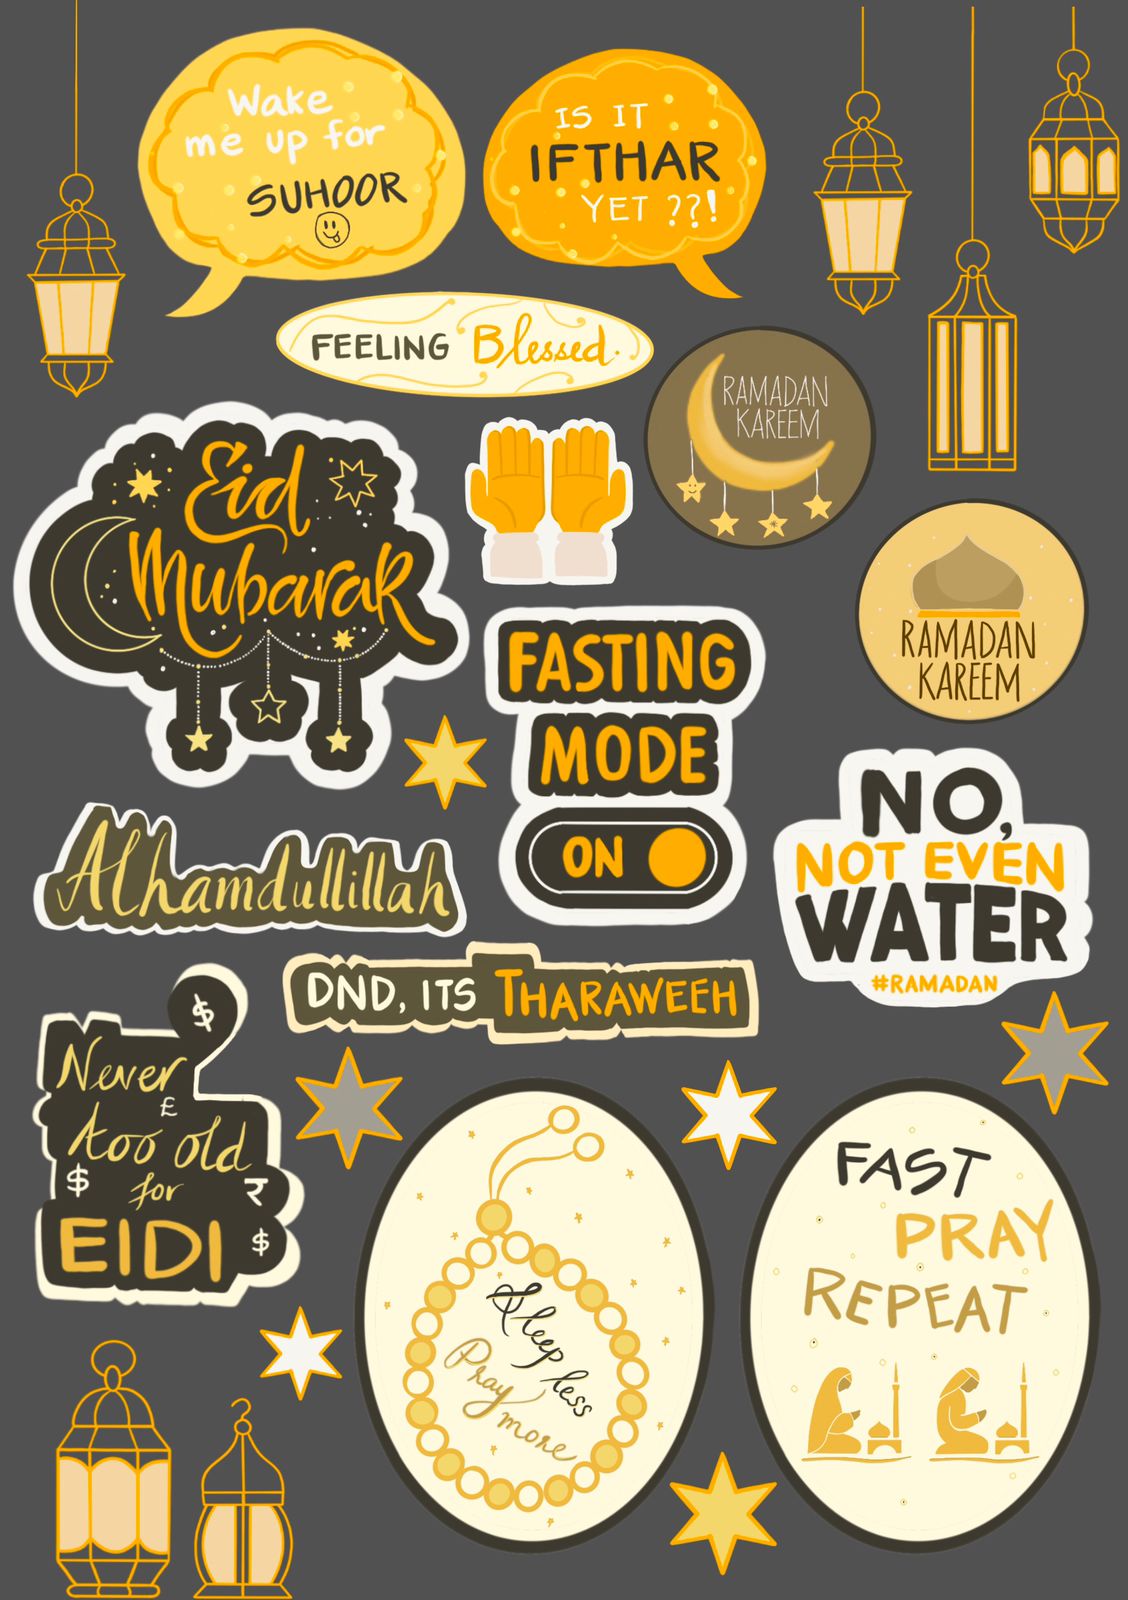 Wake
me up for
SUHOOR
IS IT
IFTHAR
YET ??!
FEELING Blessed.
RAMADAN
KAREEM
Eid
Mubarak
RAMADAN
KAREEM
FASTING
MODE
ON
NO,
NOT EVEN
WATER
#RAMADAN
Alhamdullillah
DND, ITS THARAWEEH
$
Never
£
too old
$ for ₹
EIDI $
Sleep less
Pray more
FAST
PRAY
REPEAT